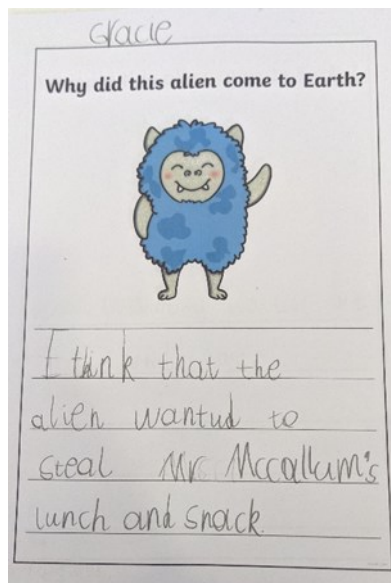 Gracie
Why did this alien come to Earth?
I think that the
alien wantud to
steal Mr Mccallum's
lunch and snack.